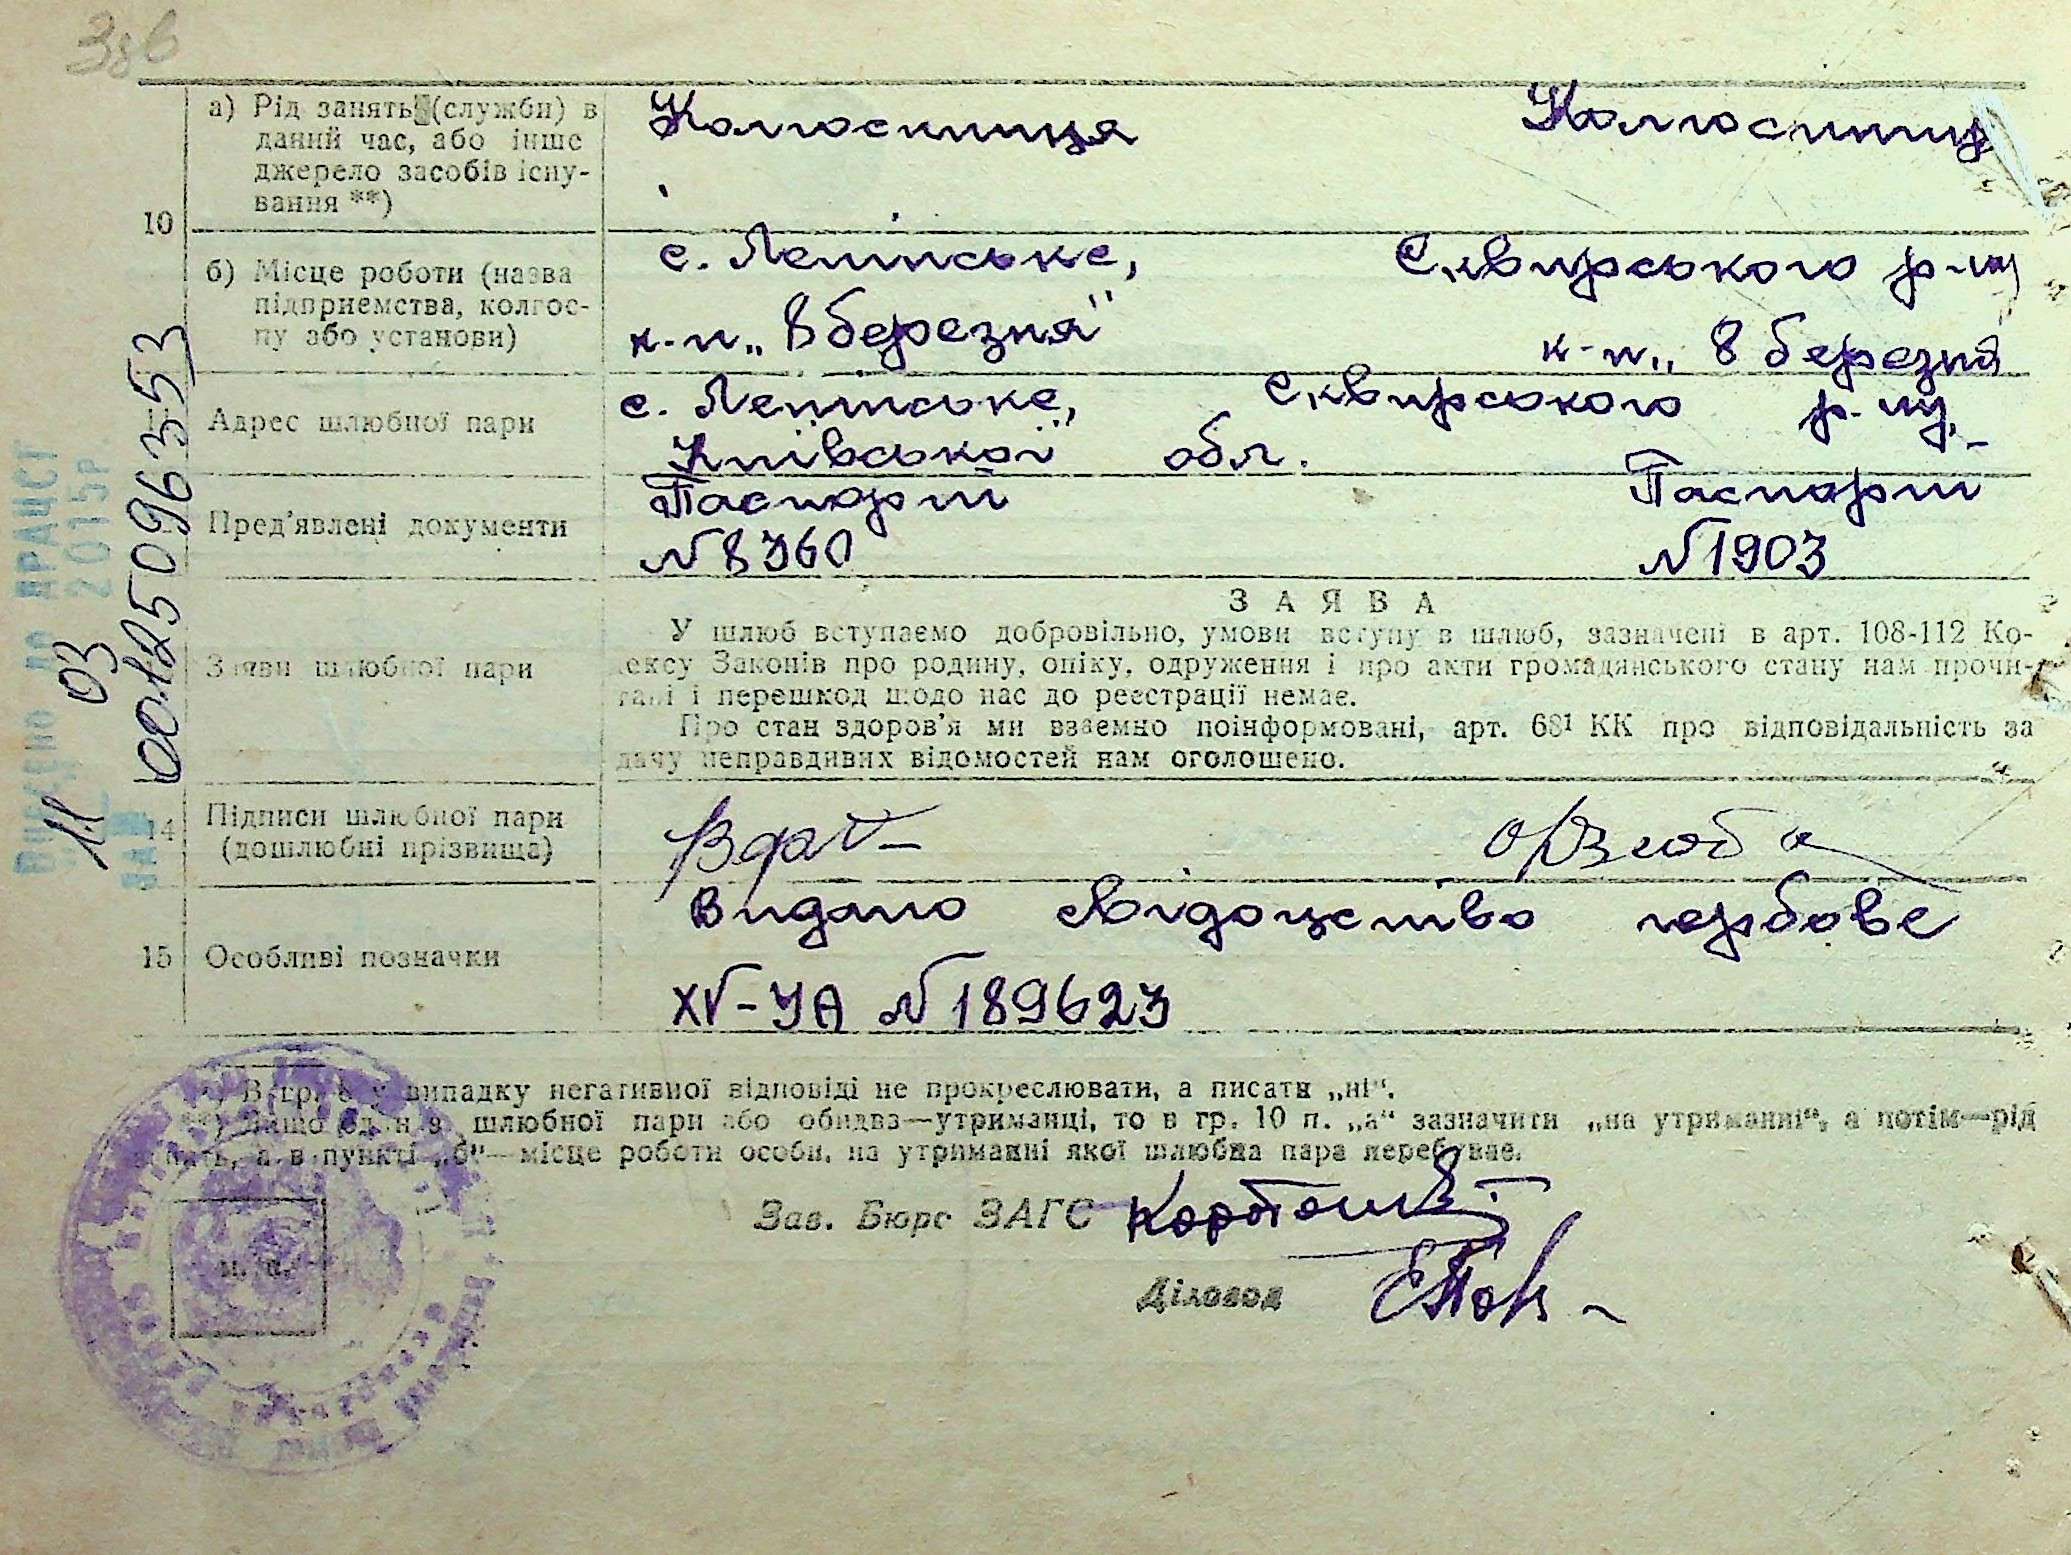 386
а) Рід занять (служби) в
даний час, або інше
джерело засобів існу-
вання **)
Колгоспниця Колгоспник
10
б) Місце роботи (назва
підприємства, колгос-
пу або установи)
с. Ленінське, Сквирського р-ну
к-п „8 березня" к-п „8 березня
Адрес шлюбної пари
с. Ленінське, Сквирського р-ну,
Київської обл.
Пред'явлені документи
Паспорт Паспорт
№ 8760 № 1903
Заяви шлюбної пари
ЗАЯВА
У шлюб вступаємо добровільно, умови вступу в шлюб, зазначені в арт. 108-112 Ко-
дексу Законів про родину, опіку, одруження і про акти громадянського стану нам прочи-
тані і перешкод щодо нас до реєстрації немає.
Про стан здоров'я ми взаємно поінформовані, арт. 68¹ КК про відповідальність за
дачу неправдивих відомостей нам оголошено.
14
Підписи шлюбної пари
(дошлюбні прізвища)
15
Особливі позначки
Видано свідоцтво гербове
XV-УА № 189623
*) В гр. 8 у випадку негативної відповіді не прокреслювати, а писати „ні".
**) Якщо один з шлюбної пари або обидва—утриманці, то в гр. 10 п. „а" зазначити „на утриманні", а потім—рід
занять, а в пункті „б"—місце роботи особи, на утриманні якої шлюбна пара перебуває.
Зав. Бюро ЗАГС
Діловод
м. п.
Внесено до ДРАЦСГ
11 03 2015р
ЗА № 00125096353